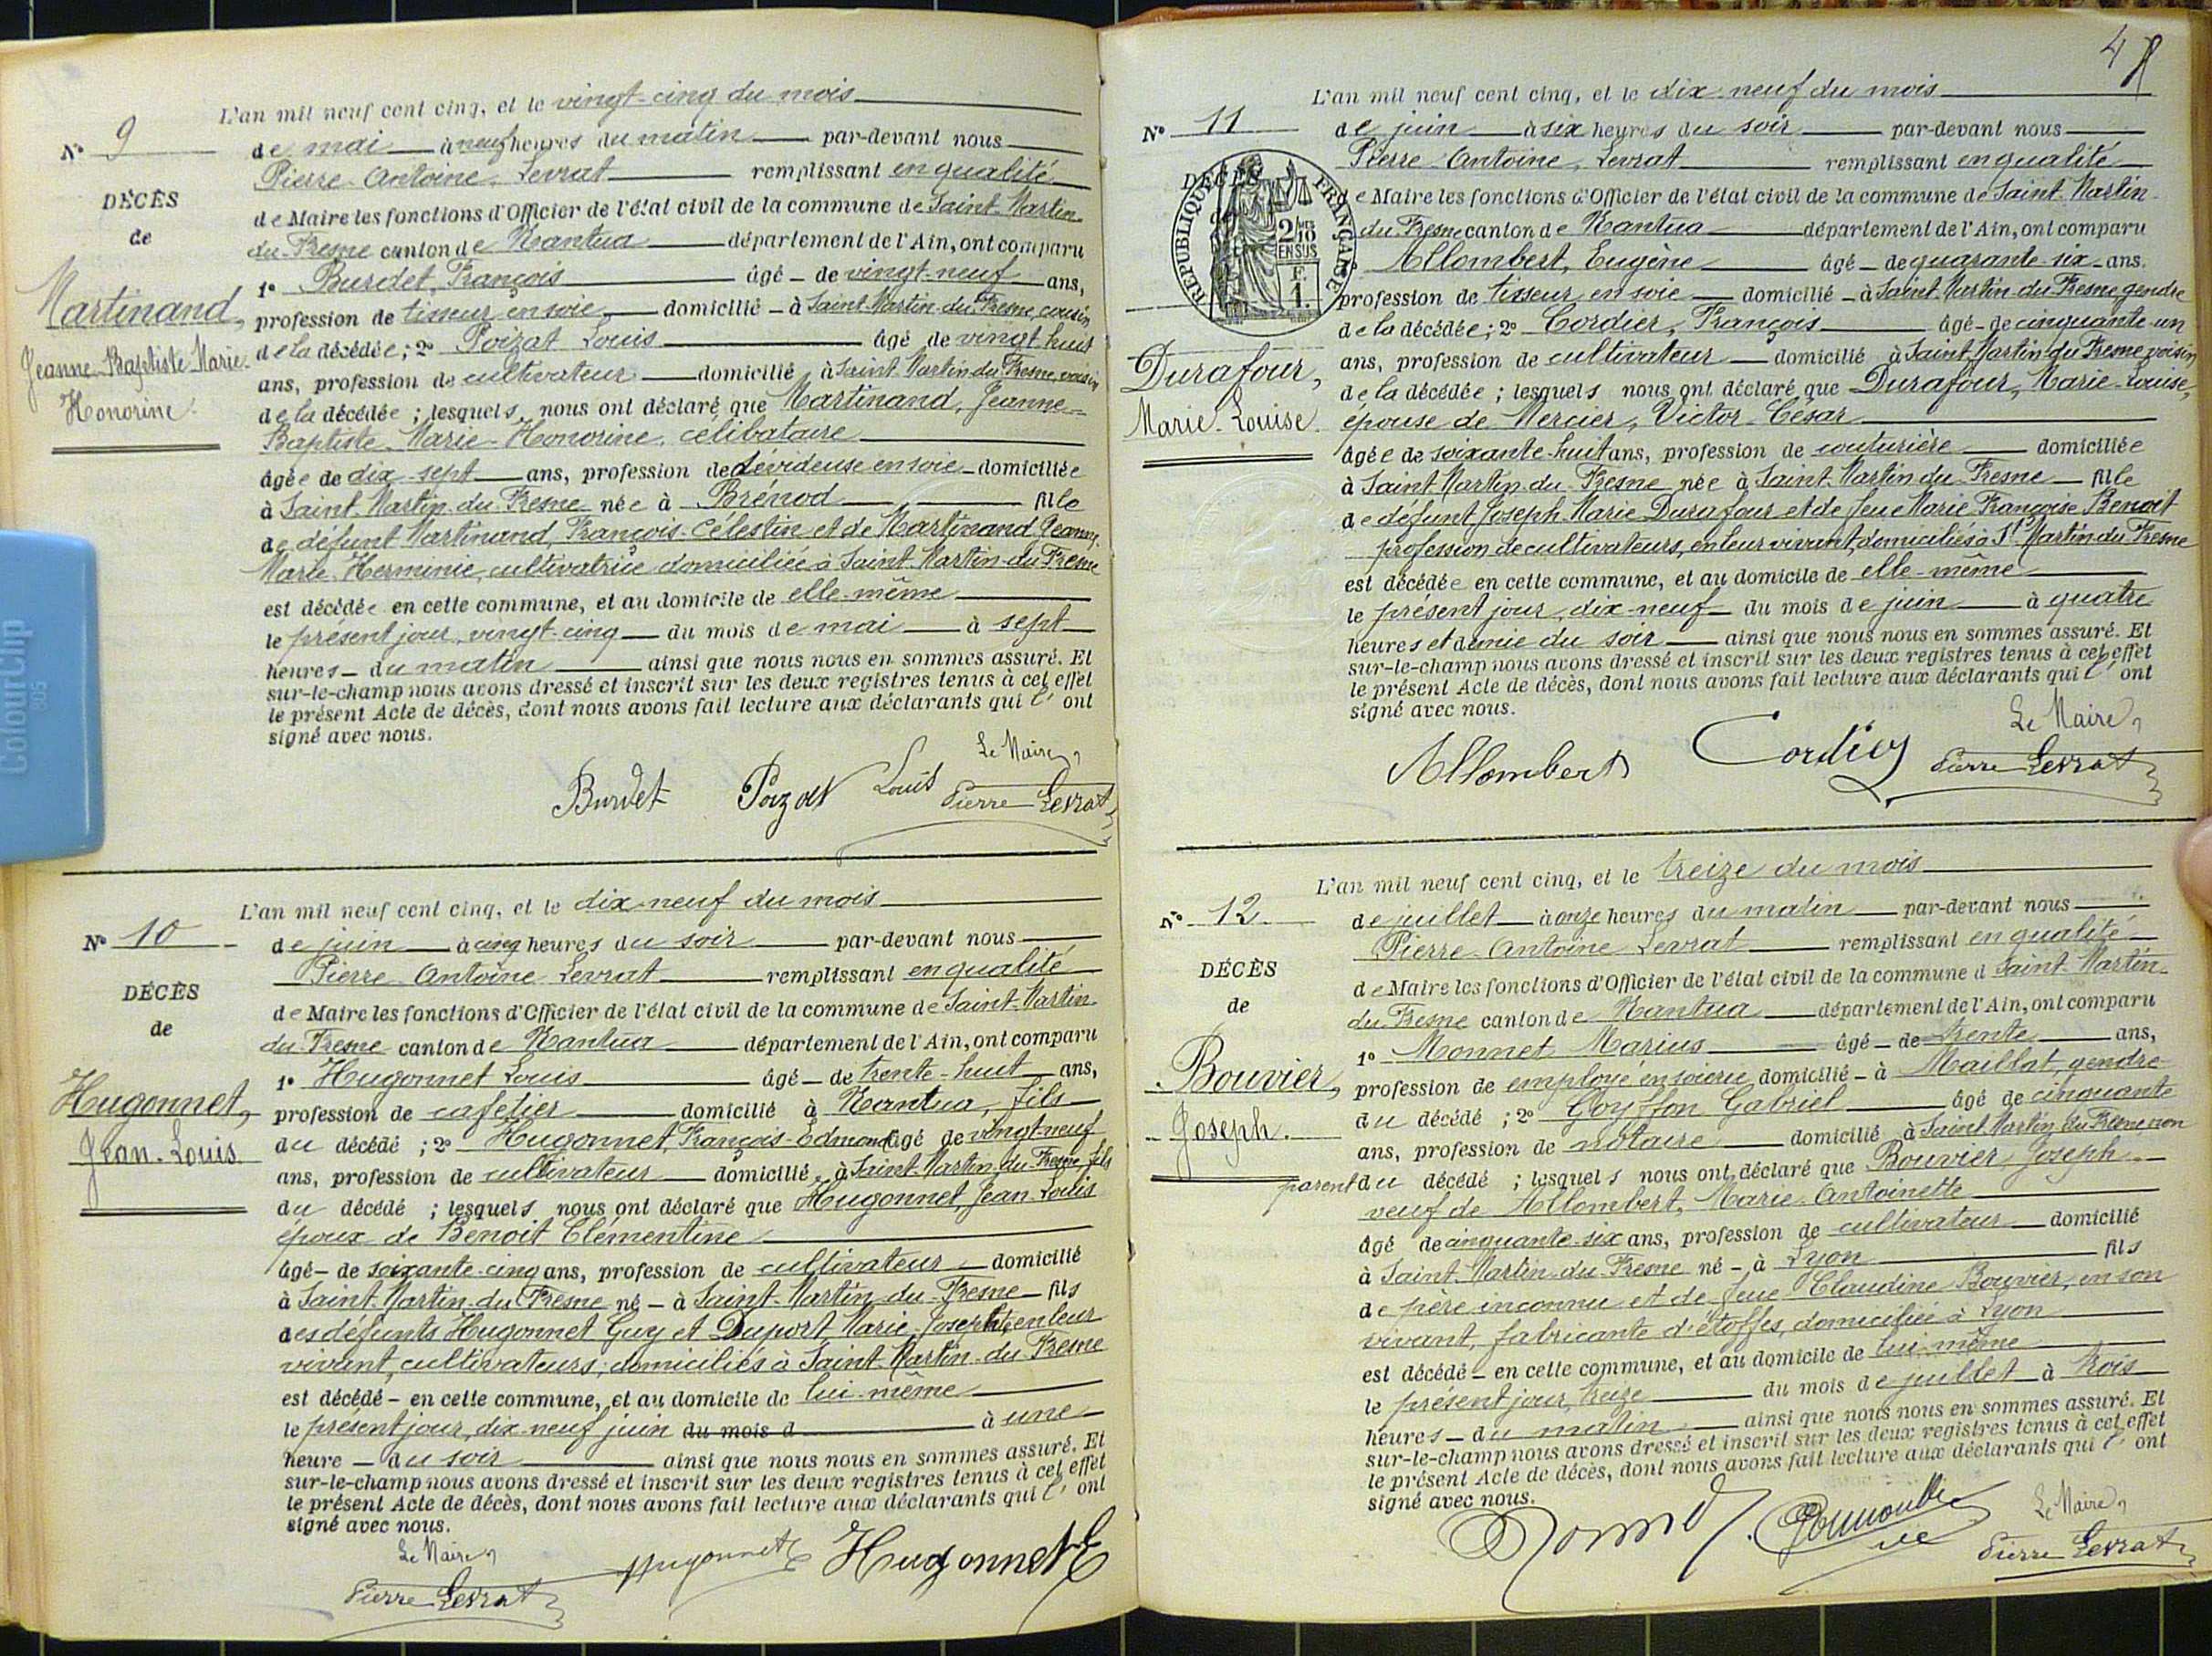 L'an mil neuf cent cinq, et le vingt-cinq du mois
N° 9
de mai à neuf heures du matin par-devant nous
Pierre-Antoine Levrat remplissant en qualité
DÉCÈS
de Maire les fonctions d'Officier de l'état civil de la commune de Saint-Martin-
de
du-Fresne canton de Nantua département de l'Ain, ont comparu
1° Burdet, François âgé - de vingt-neuf ans,
Martinand,
profession de tisseur en soie domicilié - à Saint-Martin-du-Fresne, cousin
Jeanne-Baptiste-Marie-
de la décédée ; 2° Poizat Louis âgé de vingt huit
ans, profession de cultivateur domicilié à Saint-Martin du Fresne, voisin
Honorine.
de la décédée ; lesquels nous ont déclaré que Martinand, Jeanne-
Baptiste-Marie-Honorine, célibataire
âgée de dix-sept ans, profession de dévideuse en soie domiciliée
à Saint-Martin-du-Fresne née à Brénod fille
de défunt Martinand, François-Célestin et de Martinand Jeanne-
Marie-Herminie, cultivatrice domiciliée à Saint-Martin-du-Fresne
est décédée en cette commune, et au domicile de elle-même
le présent jour, vingt-cinq du mois de mai à sept
heures - du matin ainsi que nous nous en sommes assuré. Et
sur-le-champ nous avons dressé et inscrit sur les deux registres tenus à cet effet
le présent Acte de décès, dont nous avons fait lecture aux déclarants qui l' ont
signé avec nous.
Le Maire,
Burdet Poizat Louis Pierre Levrat
L'an mil neuf cent cinq, et le dix-neuf du mois
N° 10
de juin à cinq heures du soir par-devant nous
Pierre-Antoine Levrat remplissant en qualité
DÉCÈS
de Maire les fonctions d'Officier de l'état civil de la commune de Saint-Martin-
de
du-Fresne canton de Nantua département de l'Ain, ont comparu
1° Hugonnet Louis âgé - de trente-huit ans,
Hugonnet,
profession de cafetier domicilié à Nantua, fils
Jean-Louis.
du décédé ; 2° Hugonnet, François-Edmond âgé de vingt-neuf
ans, profession de cultivateur domicilié à Saint-Martin-du-Fresne, fils
du décédé ; lesquels nous ont déclaré que Hugonnet, Jean-Louis
époux de Benoit Clémentine
âgé - de soixante-cinq ans, profession de cultivateur domicilié
à Saint-Martin-du-Fresne né - à Saint-Martin-du-Fresne fils
des défunts Hugonnet Guy et Duport, Marie-Josephte, en leur
vivant, cultivateurs, domiciliés à Saint-Martin-du-Fresne
est décédé - en cette commune, et au domicile de lui-même
le présent jour, dix-neuf juin du mois d à une
heure - du soir ainsi que nous nous en sommes assuré. Et
sur-le-champ nous avons dressé et inscrit sur les deux registres tenus à cet effet
le présent Acte de décès, dont nous avons fait lecture aux déclarants qui l' ont
signé avec nous.
Le Maire,
Pierre Levrat Hugonnet Hugonnet E
4
L'an mil neuf cent cinq, et le dix-neuf du mois
N° 11
de juin à six heures du soir par-devant nous
Pierre-Antoine Levrat remplissant en qualité
DÉCÈS
RÉPUBLIQUE FRANÇAISE
2/10 EN SUS
F. 1.
de Maire les fonctions d'Officier de l'état civil de la commune de Saint-Martin-
du-Fresne canton de Nantua département de l'Ain, ont comparu
Allombert, Eugène âgé - de quarante-six - ans.
profession de tisseur en soie domicilié - à Saint-Martin-du-Fresne, gendre
de la décédée ; 2° Cordier, François âgé - de cinquante-un
Durafour,
ans, profession de cultivateur domicilié à Saint-Martin du Fresne voisin
de la décédée ; lesquels nous ont déclaré que Durafour, Marie-Louise,
Marie-Louise.
épouse de Mercier, Victor-César
âgée de soixante-huit ans, profession de couturière domiciliée
à Saint-Martin-du-Fresne née à Saint-Martin-du-Fresne fille
de défunt Joseph-Marie Durafour et de feue Marie-Françoise Benoit
profession de cultivateurs, en leur vivant, domiciliés à St-Martin-du-Fresne
est décédée en cette commune, et au domicile de elle-même
le présent jour, dix-neuf du mois de juin à quatre
heures et demie du soir ainsi que nous nous en sommes assuré. Et
sur-le-champ nous avons dressé et inscrit sur les deux registres tenus à cet effet
le présent Acte de décès, dont nous avons fait lecture aux déclarants qui l' ont
signé avec nous.
Le Maire,
Allombert Cordier Pierre Levrat
L'an mil neuf cent cinq, et le treize du mois
N° 12.
de juillet à onze heures du matin par-devant nous
Pierre-Antoine Levrat remplissant en qualité
DÉCÈS
de Maire les fonctions d'Officier de l'état civil de la commune d Saint-Martin-
de
du-Fresne canton de Nantua département de l'Ain, ont comparu
1° Monnet Marius âgé - de trente ans,
Bouvier,
profession de employé en soierie, domicilié - à Maillat, gendre
Joseph.
du décédé ; 2° Goyffon Gabriel âgé de cinquante
ans, profession de notaire domicilié à Saint-Martin-du-Fresne, non
parent du décédé ; lesquels nous ont déclaré que Bouvier Joseph
veuf de Allombert, Marie-Antoinette
âgé de cinquante-six ans, profession de cultivateur domicilié
à Saint-Martin-du-Fresne né - à Lyon fils
de père inconnu et de feue Claudine Bouvier, en son
vivant, fabricante d'étoffes, domiciliée à Lyon
est décédé - en cette commune, et au domicile de lui-même
le présent jour, treize du mois de juillet à trois
heures - du matin ainsi que nous nous en sommes assuré. Et
sur-le-champ nous avons dressé et inscrit sur les deux registres tenus à cet effet
le présent Acte de décès, dont nous avons fait lecture aux déclarants qui l' ont
signé avec nous.
Le Maire,
Pierre Levrat
ColourClip